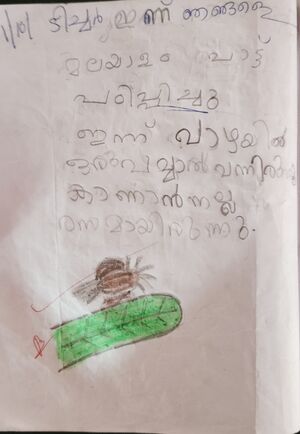 1/8/ ടീച്ചർ ഇന്ന് ഞങ്ങളെ
മലയാളം പാട്ട്
പഠിപ്പിച്ചു
ഇന്ന് വാഴയിൽ
ഒരു വവ്വാൽ വന്നിരുന്നു
കാണാൻനല്ല
രസമായിരുന്നു.